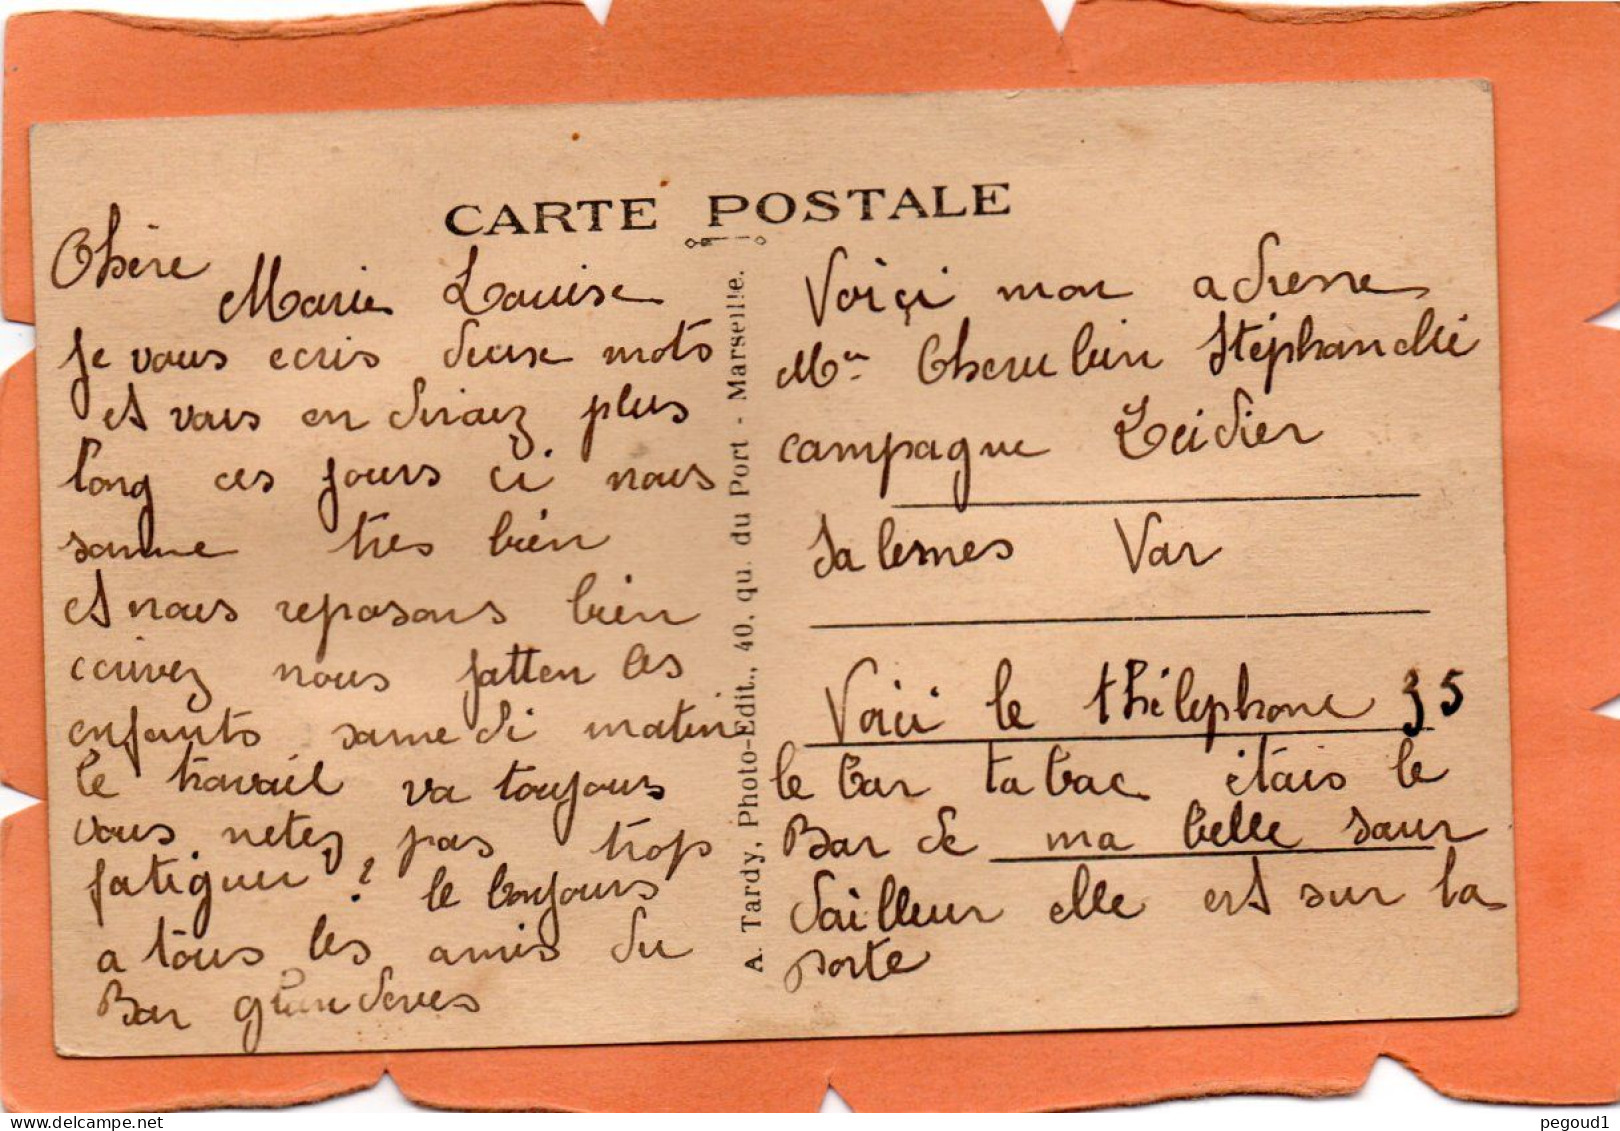 CARTE POSTALE
Chère
Marie Louise
Je vous ecris deux mots
et vous en diraiz plus
long ces jours ci nous
somme tres bien
et nous reposons bien
ecrivez nous jatten les
enfants samedi matin
le travail va toujours
vous netez pas trop
fatiguer ? le bonjours
a tous les amis du
Bar
A. Tardy, Photo-Edit., 40, qu. du Port - Marseille.
Voiçi mon adresse
Mme Cherubin Stéphanelli
campagne Leidier
Salernes Var
Voici le thélephone 35
le bar tabac étais le
Bar de ma belle sœur
dailleur elle est sur la
porte
pegoud1